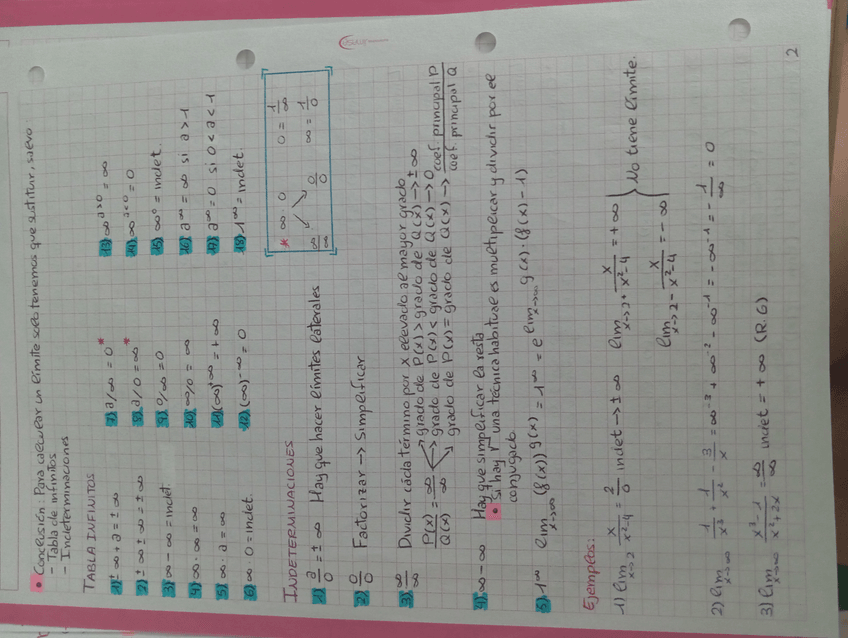 • Conclusión: Para calcular un límite solo tenemos que sustituir, salvo
- Tabla de infinitos
- Indeterminaciones
TABLA INFINITOS
1) ±∞ + a = ±∞
2) ±∞ ±∞ = ±∞
3) ∞ - ∞ = indet.
4) ∞ · ∞ = ∞
5) ∞ · a = ∞
6) ∞ · 0 = indet.
7) a/∞ = 0*
8) a/0 = ∞*
9) 0/∞ = 0
10) ∞/0 = ∞
11) (∞)^+∞ = +∞
12) (∞)^-∞ = 0
13) ∞^a>0 = ∞
14) ∞^a<0 = 0
15) ∞^0 = indet.
16) a^∞ = ∞ si a > 1
17) a^∞ = 0 si 0 < a < 1
18) 1^∞ = indet.
* ∞ · 0 0 = 1/∞
∞/∞ 0/0 ∞ = 1/0
INDETERMINACIONES
1) a/0 = ±∞ Hay que hacer límites laterales
2) 0/0 Factorizar → Simplificar
3) ∞/∞ Dividir cada término por x elevado al mayor grado
P(x)/Q(x) = ∞/∞ → grado de P(x) > grado de Q(x) → ±∞
→ grado de P(x) < grado de Q(x) → 0
→ grado de P(x) = grado de Q(x) → coef. principal P/coef. principal Q
4) ∞ - ∞ Hay que simplificar la resta
• Si hay √ una técnica habitual es multiplicar y dividir por el
conjugado.
5) 1^∞ lim x→∞ (f(x))^g(x) = 1^∞ = e^lim x→∞ g(x) · (f(x) - 1)
Ejemplos:
1) lim x→2 x/x²-4 = 2/0 indet → ±∞ lim x→2+ x/x²-4 = +∞
lim x→2- x/x²-4 = -∞
No tiene límite.
2) lim x→∞ 1/x³ + 1/x² - 3/x = ∞^-3 + ∞^-2 - ∞^-1 = -∞^-1 = -1/∞ = 0
3) lim x→∞ x³-1/x²+2x = ∞/∞ indet = +∞ (R.G)
2